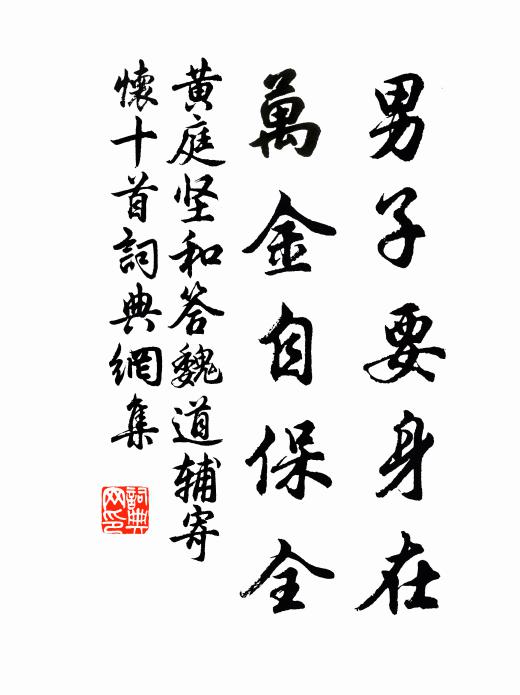 男子要身在
萬金自保全
黄庭坚和答魏道辅寄
懷十首詞典網集
詞典网印